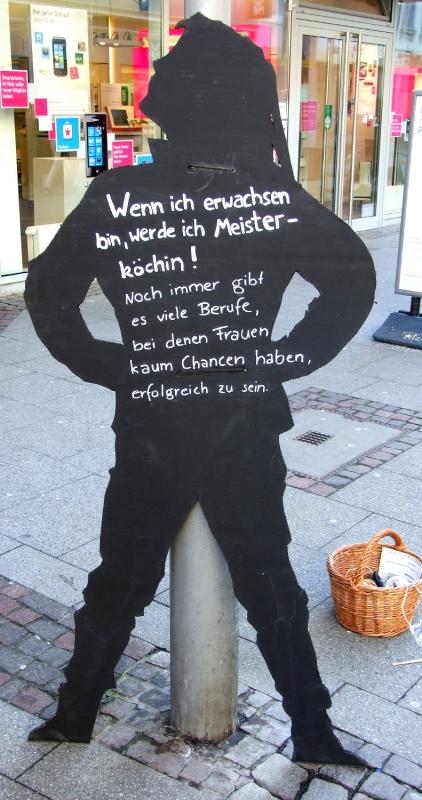 Wenn ich erwachsen
bin, werde ich Meister-
köchin!
Noch immer gibt
es viele Berufe,
bei denen Frauen
kaum Chancen haben,
erfolgreich zu sein.